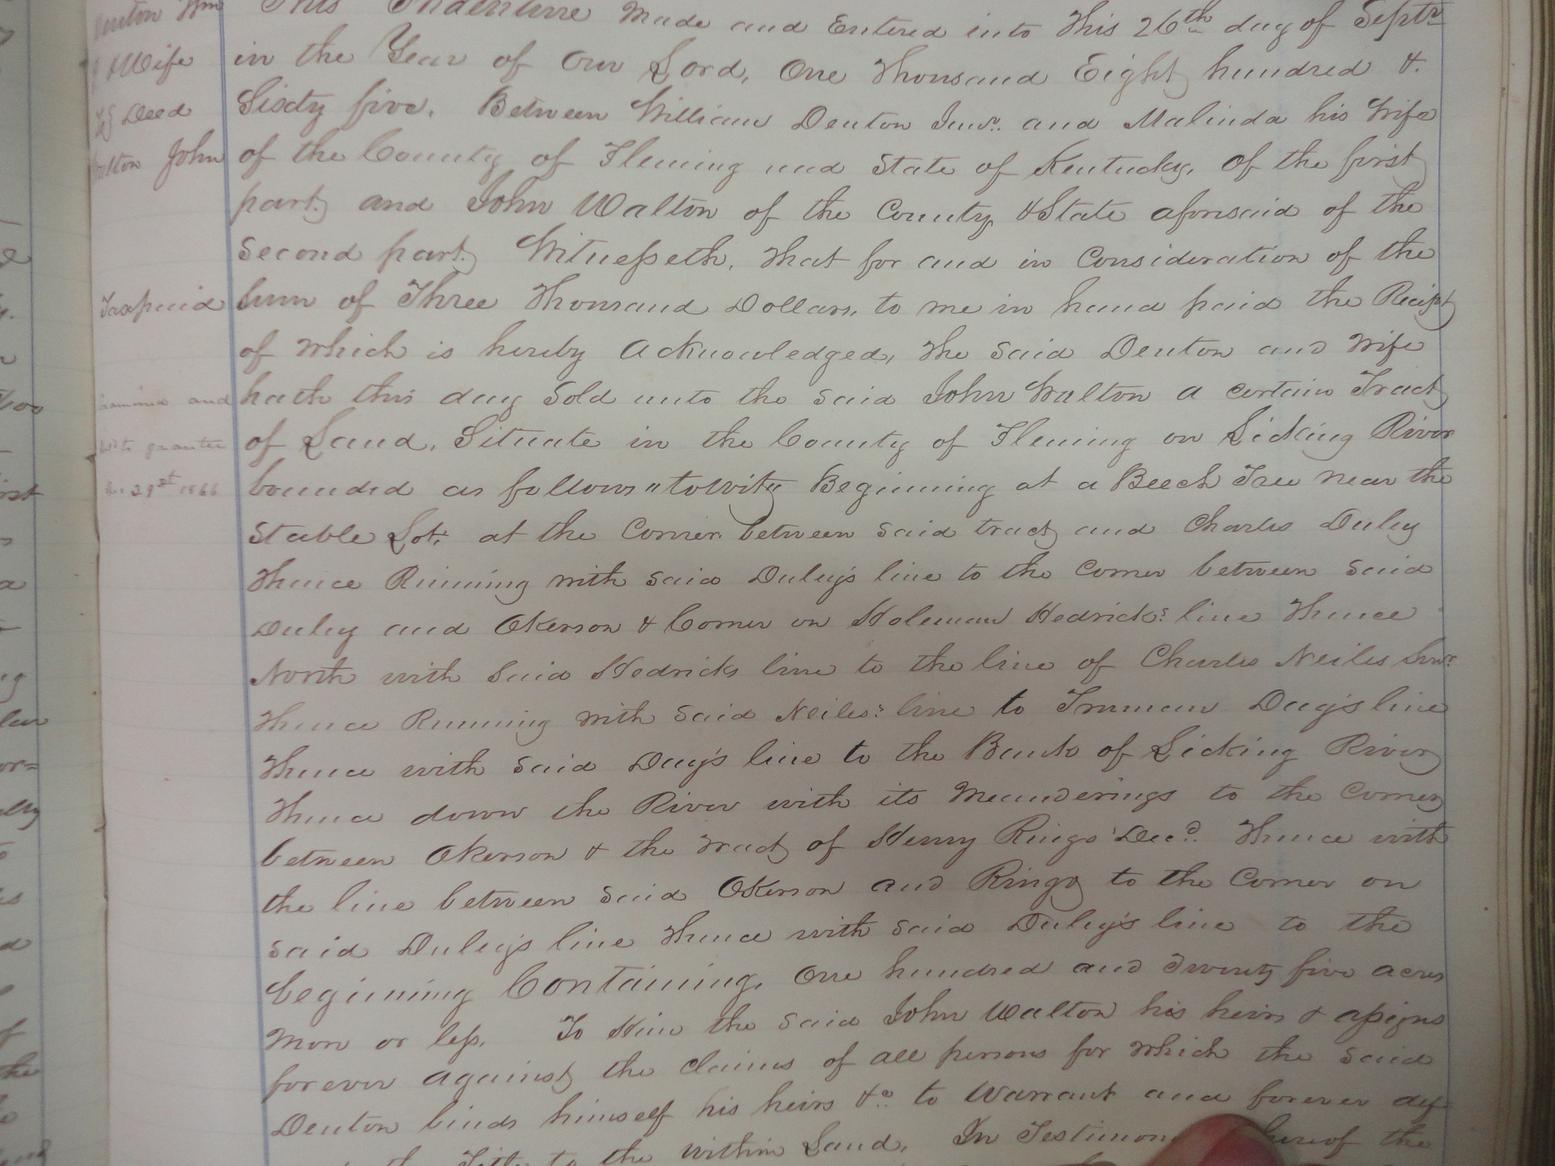 Denton Wm
& Wife
To Deed
Walton John
Taxpaid
Examined and
del'd to grantee
21st 1866
This Indenture Made and Entered into This 26th day of Septr
in the Year of Our Lord, One Thousand Eight hundred &
Sixty five. Between William Denton Senr. and Malinda his Wife
of the County of Fleming and State of Kentucky, of the first
part, and John Walton of the County & State aforisaid of the
Second part, Witnesseth, That for and in Consideration of the
Sum of Three Thousand Dollars, to me in hand paid the Recipt
of Which is hereby Acknowledged, The Said Denton and Wife
hath this day Sold unto the Said John Walton a certain Tract
of Land, Situate in the County of Fleming on Licking River
bounded as follows "towit" Beginning at a Beech Tree near the
Stable Lot, at the Corner between said tract and Charles Duley
Thence Running with said Duley's line to the Corner between Said
Duley and Okerson & Corner on Holeman Hedricks line Thence
North with Said Hedricks line to the line of Charles Neiles Senr.
Thence Running with Said Neiles: line to Truman Day's line
Thence with Said Day's line to the Bank of Licking River
Thence down the River with its Meanderings to the Corner
between Okerson & the Tract of Henry Ringo Decd. Thence with
the line between Said Okerson and Ringo to the Corner on
said Duley's line Thence with Said Duley's line to the
beginning Containing, One hundred and Twenty five acres
More or less. To Him the Said John Walton his heirs & assigns
forever against the claims of all persons for Which the Said
Denton binds himself his heirs &c. to Warrant and forever def-
Title to the within Land, In Testimony whereof the